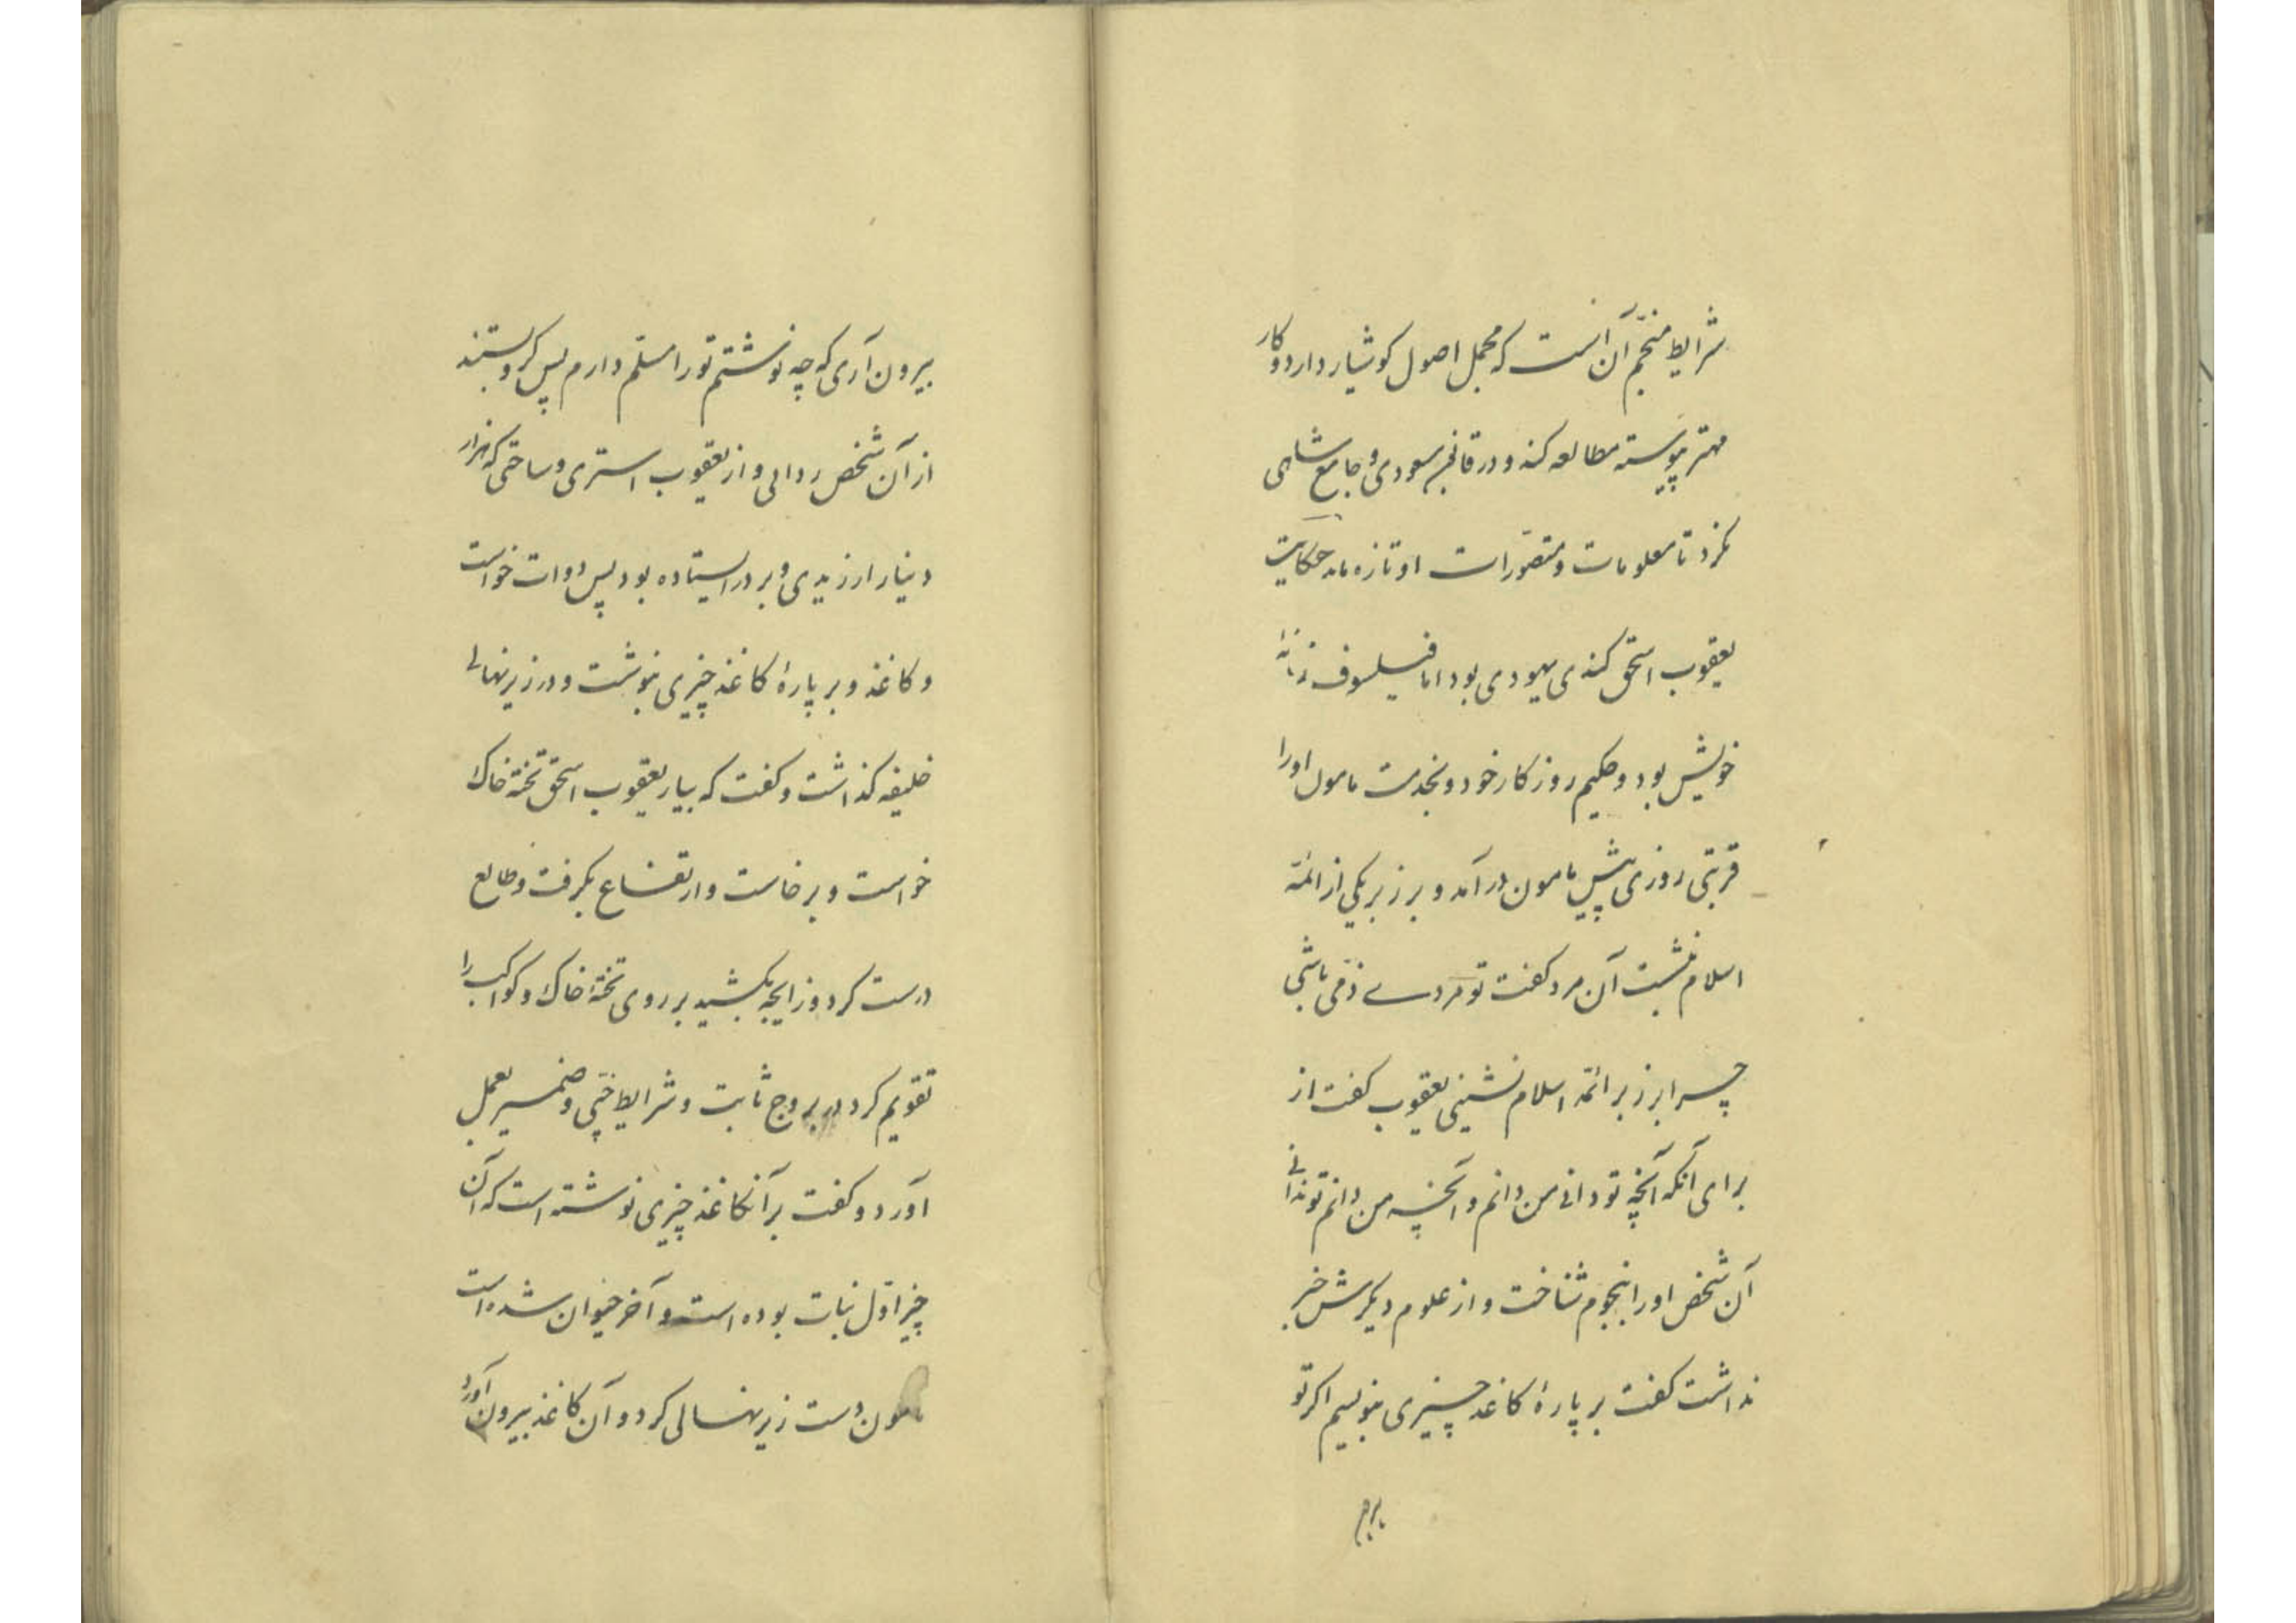 شرایط منجم آن است که مجمل اصول کوشیار دارد و کار
مهتر پیوسته مطالعه کند و در قانون مسعودی و جامع شاهی
نکرد تا معلومات و متصورات او تازه ماند حکایت
یعقوب اسحق کندی یهودی بود اما فیلسوف زمانهٔ
خویش بود و حکیم روزکار خود و بخدمت مامون او را
قربتی روزی پیش مامون درآمد و بر زبر یکی از ائمه
اسلام نشست آن مرد کفت تو مردے ذمی باشی
چرا بر زبر ائمه اسلام نشینی یعقوب کفت از
برای آنکه آنچه تو دانی من دانم و آنچه من دانم تو ندانی
آن شخص او را بنجوم شناخت و از علوم دیکرش خبر
نداشت کفت بر پارهٔ کاغذ چیزی بنویسم اکر تو
بیرون
بیرون آری که چه نوشتم تو را مسلم دارم پس کرو بستند
از آن شخص ردائی و از یعقوب استری و ساختی که هزار
دینار ارزیدی و بر در ایستاده بود پس دوات خواست
و کاغذ و بر پارهٔ کاغذ چیزی بنوشت و در زیر نهالی
خلیفه کذاشت و کفت که بیار یعقوب اسحق تخته خاک
خواست و برخاست و ارتفاع بکرفت و طالع
درست کرد و زایجه بکشید بر روی تختهٔ خاک و کواکب را
تقویم کرد در بروج ثابت و شرایط خبی و ضمیر بعمل
آورد و کفت بر آنکاغذ چیزی نوشته است که آن
چیز اول نبات بوده است و آخر حیوان شده است
مامون دست زیر نهالی کرد و آن کاغذ بیرون آورد